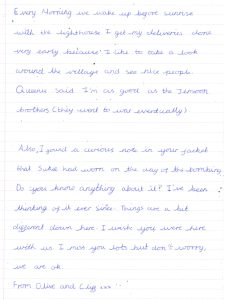 Every Morning we wake up before sunrise
with the lighthouse. I get my deliveries done
very early because I like to take a look
around the village and see nice people.
Queenie said I'm as good as the
brothers (they went to war eventually).
Also, I found a curious note in your jacket
that Sukie had worn on the day of the bombing.
Do you know anything about it? I've been
thinking of it ever since. Things are a bit
different down here. I wish you were here
with us. I miss you lots but don't worry,
we are ok.
From Olive and Cliff xxx